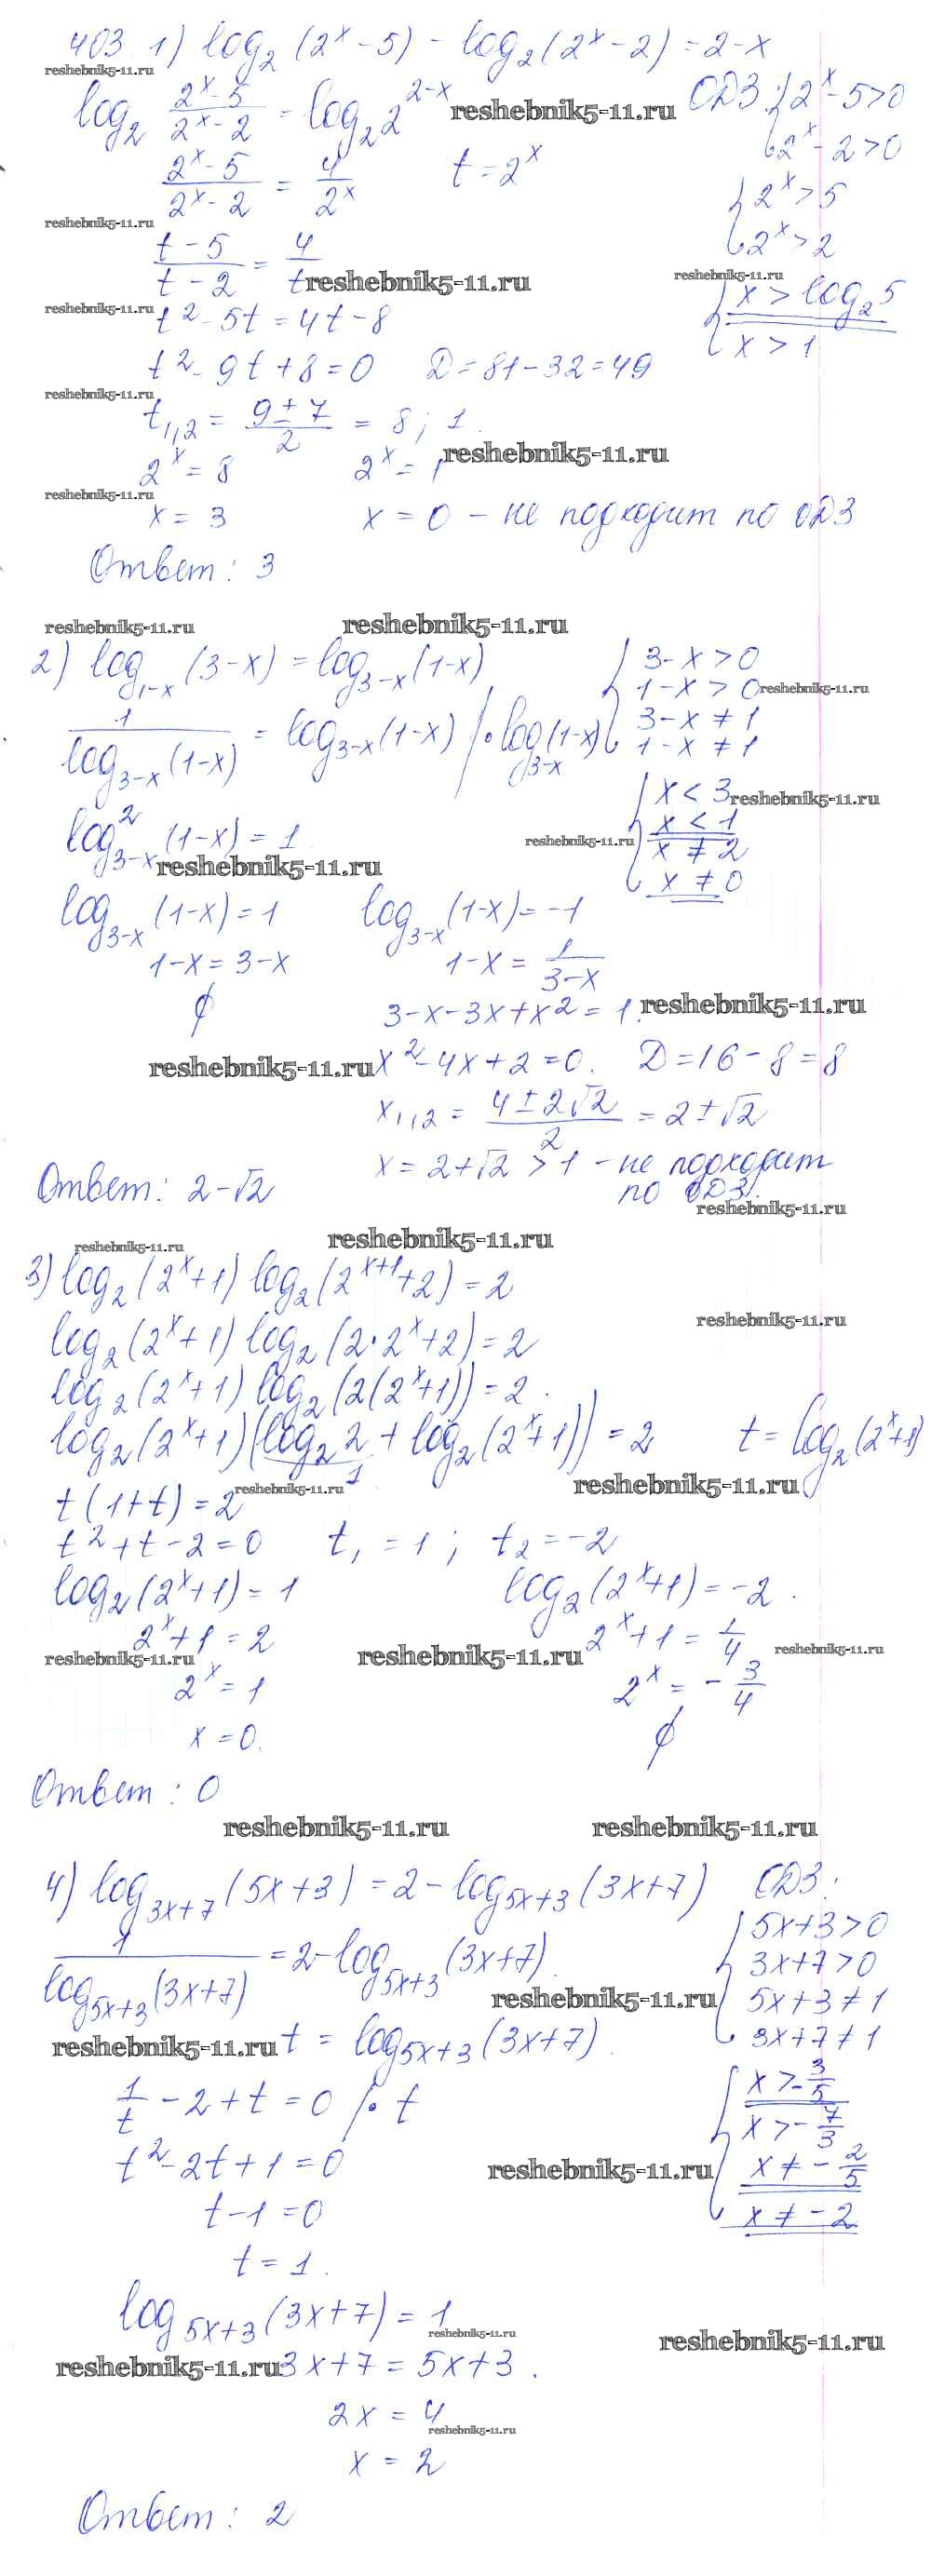 403. 1) log₂(2ˣ-5) - log₂(2ˣ-2) = 2-x
reshebnik5-11.ru
log₂ (2ˣ-5)/(2ˣ-2) = log₂2²⁻ˣ reshebnik5-11.ru ОДЗ: { 2ˣ-5>0
2ˣ-2>0
(2ˣ-5)/(2ˣ-2) = 4/2ˣ t=2ˣ { 2ˣ>5
reshebnik5-11.ru
2ˣ>2
(t-5)/(t-2) = 4/t reshebnik5-11.ru reshebnik5-11.ru
{ x>log₂5
reshebnik5-11.ru t²-5t=4t-8
x>1
t²-9t+8=0 D=81-32=49
reshebnik5-11.ru
t₁,₂ = (9±7)/2 = 8; 1.
2ˣ=8 2ˣ=1 reshebnik5-11.ru
reshebnik5-11.ru
x=3 x=0 - не подходит по ОДЗ
Ответ: 3
reshebnik5-11.ru reshebnik5-11.ru
2) log₁₋ₓ(3-x) = log₃₋ₓ(1-x) { 3-x>0
1-x>0 reshebnik5-11.ru
1/log₃₋ₓ(1-x) = log₃₋ₓ(1-x) |·log₃₋ₓ(1-x) 3-x≠1
1-x≠1
{ x<3 reshebnik5-11.ru
log²₃₋ₓ(1-x)=1 x<1
reshebnik5-11.ru reshebnik5-11.ru x≠2
x≠0
log₃₋ₓ(1-x)=1 log₃₋ₓ(1-x)=-1
1-x=3-x 1-x=1/(3-x)
∅ 3-x-3x+x²=1. reshebnik5-11.ru
reshebnik5-11.ru x²-4x+2=0. D=16-8=8
x₁,₂ = (4±2√2)/2 = 2±√2
x=2+√2 >1 - не подходит
Ответ: 2-√2 по ОДЗ.
reshebnik5-11.ru
reshebnik5-11.ru reshebnik5-11.ru
3) log₂(2ˣ+1) log₂(2ˣ⁺¹+2)=2
reshebnik5-11.ru
log₂(2ˣ+1) log₂(2·2ˣ+2)=2
log₂(2ˣ+1) log₂(2(2ˣ+1))=2.
log₂(2ˣ+1)(log₂2+log₂(2ˣ+1))=2 t=log₂(2ˣ+1)
1
t(1+t)=2 reshebnik5-11.ru reshebnik5-11.ru
t²+t-2=0 t₁=1; t₂=-2
log₂(2ˣ+1)=1 log₂(2ˣ+1)=-2.
2ˣ+1=2 2ˣ+1=1/4
reshebnik5-11.ru reshebnik5-11.ru reshebnik5-11.ru
2ˣ=1 2ˣ=-3/4
x=0. ∅
Ответ: 0
reshebnik5-11.ru reshebnik5-11.ru
4) log₃ₓ₊₇(5x+3)=2-log₅ₓ₊₃(3x+7) ОДЗ:
{ 5x+3>0
1/log₅ₓ₊₃(3x+7) = 2-log₅ₓ₊₃(3x+7). 3x+7>0
reshebnik5-11.ru 5x+3≠1
reshebnik5-11.ru t=log₅ₓ₊₃(3x+7). 3x+7≠1
1/t-2+t=0 |·t { x>-3/5
x>-7/3
t²-2t+1=0 reshebnik5-11.ru x≠-2/5
t-1=0 x≠-2
t=1.
log₅ₓ₊₃(3x+7)=1
reshebnik5-11.ru
reshebnik5-11.ru
reshebnik5-11.ru 3x+7=5x+3.
2x=4
reshebnik5-11.ru
x=2
Ответ: 2